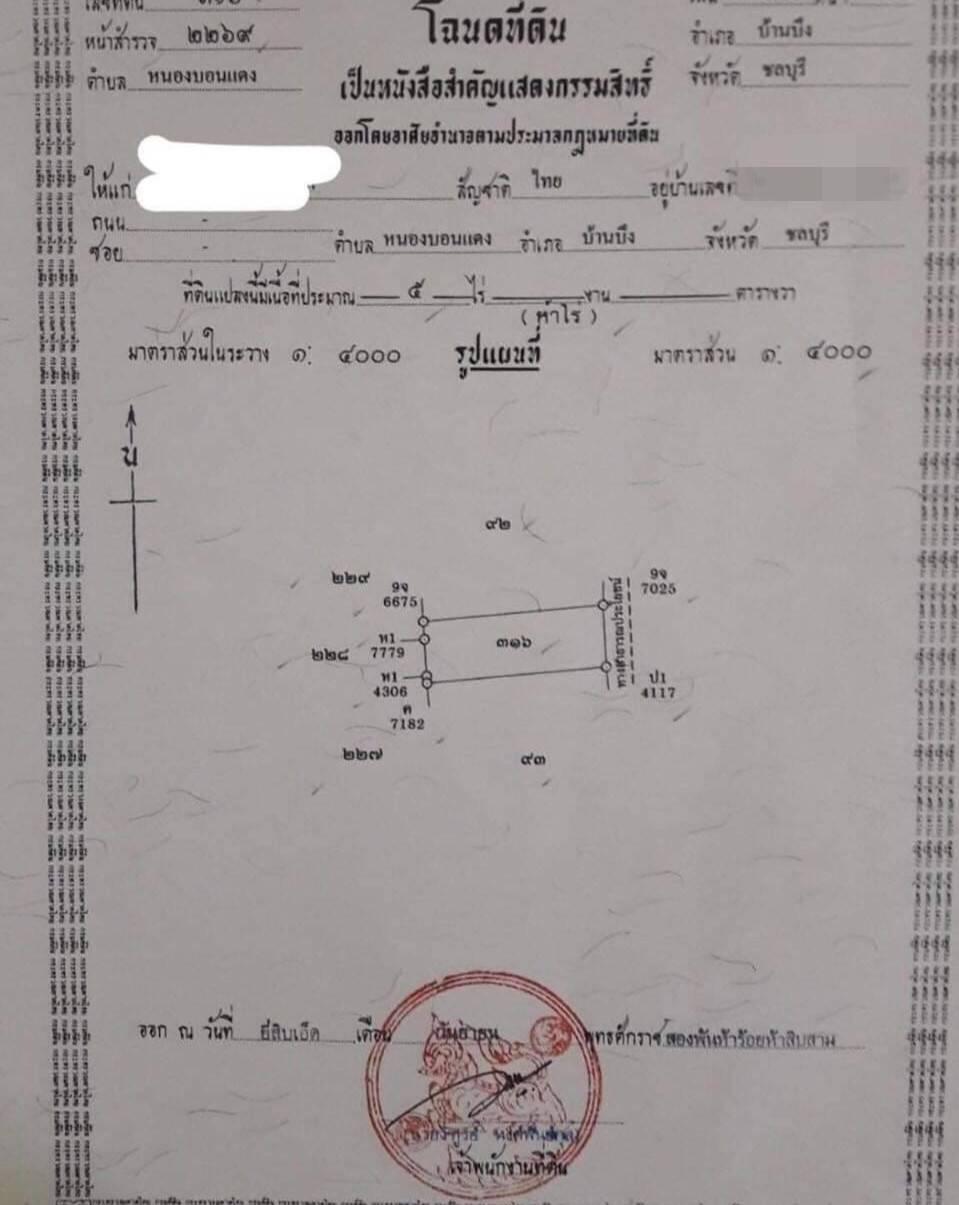 เลขที่ดิน
หน้าสำรวจ ๒๒๖๙
ตำบล หนองบอนแดง
โฉนดที่ดิน
เป็นหนังสือสำคัญแสดงกรรมสิทธิ์
ออกโดยอาศัยอำนาจตามประมวลกฎหมายที่ดิน
อำเภอ บ้านบึง
จังหวัด ชลบุรี
ให้แก่ สัญชาติ ไทย อยู่บ้านเลขที่
ถนน -
ซอย - ตำบล หนองบอนแดง อำเภอ บ้านบึง จังหวัด ชลบุรี
ที่ดินแปลงนี้มีเนื้อที่ประมาณ ๕ ไร่ งาน ตารางวา
( ห้าไร่ )
มาตราส่วนในระวาง ๑: ๔๐๐๐ รูปแผนที่ มาตราส่วน ๑: ๔๐๐๐
น
๙๒
๒๒๙
9จ
6675
9จ
7025
ท1
7779
๓๑๖
ทางสาธารณประโยชน์
๒๒๘
ท1
4306
ป1
4117
ค
7182
๒๒๗
๙๓
ออก ณ วันที่ ยี่สิบเอ็ด เดือน กันยายน พุทธศักราช สองพันห้าร้อยห้าสิบสาม
เจ้าพนักงานที่ดิน